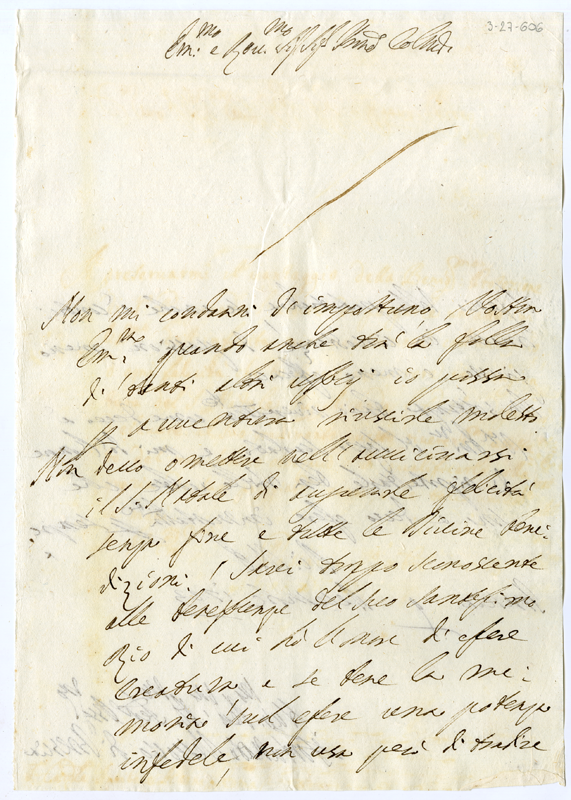 3-27-606
Em.mo e Rev.mo Sig.
Non mi condanni d'importuno Vostra
Em.za quando anche trà la folla
di tanti altri uffizj io possa
p auuentura riuscirle molesto.
Non deuo omettere nell'auuicinarsi
il S. Natale di augurarle felicità
senza fine e tutte le Diuine bene-
dizioni. Sarei troppo sconoscente
alle beneficenze del suo Santissimo
Zio di cui hò l'honore di essere
Creatura e se bene la me-
moria suol essere una potenza
infedele, non usa però di tradire